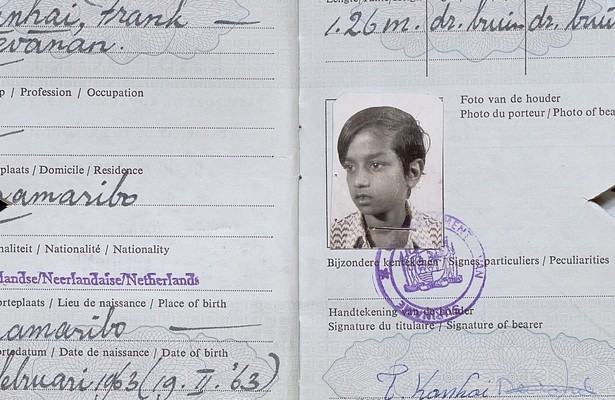 nkhai, Frank —
evanan.
p / Profession / Occupation
plaats / Domicile / Residence
amaribo
naliteit / Nationalité / Nationality
landse/Neerlandaise/Netherlands
orteplaats / Lieu de naissance / Place of birth
amaribo —
ortedatum / Date de naissance / Date of birth
ebruari 1963 (19. II. '63)
1.26 m. dr. bruin dr. brui
Foto van de houder
Photo du porteur / Photo of bea
Bijzondere kentekenen / Signes particuliers / Peculiarities
Handtekening van de houder
Signature du titulaire / Signature of bearer
Kanhai